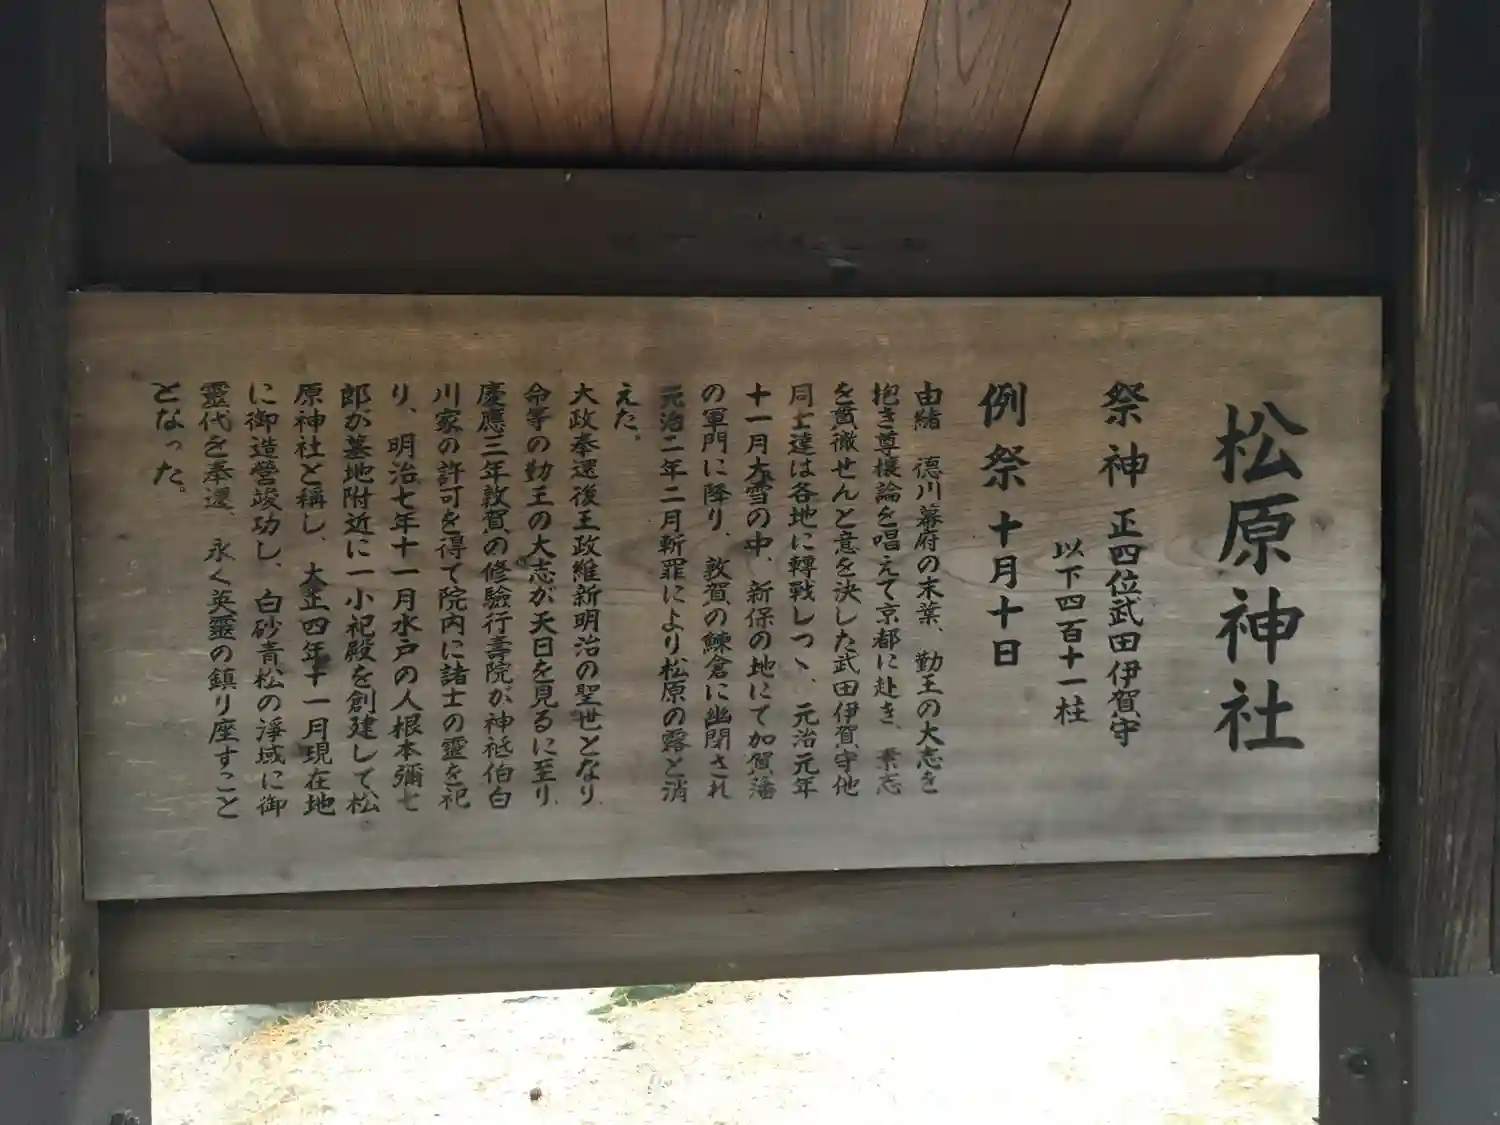 松原神社
祭神 正四位武田伊賀守
以下四百十一柱
例祭 十月十日
由緒 德川幕府の末葉、勤王の大志を
抱き尊攘論を唱えて京都に赴き、素志
を貫徹せんと意を決した武田伊賀守他
同士達は各地に轉戰しつゝ、元治元年
十一月大雪の中、新保の地にて加賀藩
の軍門に降り、敦賀の鰊倉に幽閉され
元治二年二月斬罪により松原の露と消
えた。
大政奉還後王政維新明治の聖世となり
命等の勤王の大志が天日を見るに至り
慶應三年敦賀の修驗行壽院が神祗伯白
川家の許可を得て院内に諸士の靈を祀
り、明治七年十一月水戸の人根本彌七
郎が墓地附近に一小祀殿を創建して松
原神社と稱し、大正四年十一月現在地
に御造營竣功し、白砂青松の淨域に御
靈代を奉還、永く英靈の鎮り座すこと
となった。